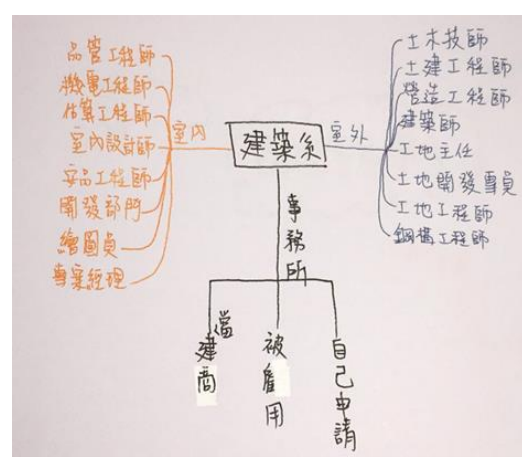 品管工程師
機電工程師
估算工程師
室內設計師
安品工程師
開發部門
繪圖員
專案經理
室內
建築系
室外
土木技師
土建工程師
營造工程師
建築師
工地主任
土地開發專員
工地工程師
鋼構工程師
事務所
當建商
被雇用
自己申請